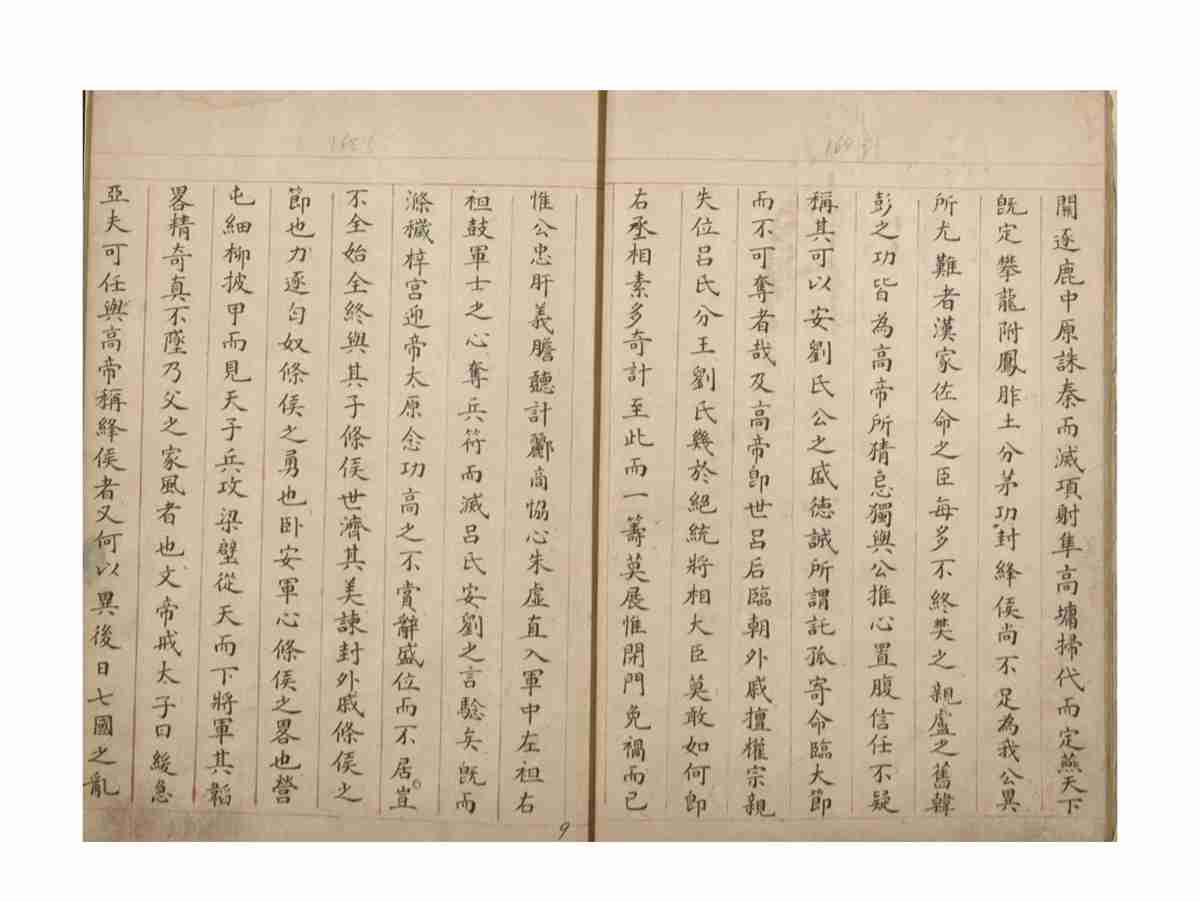 開逐鹿中原誅秦而滅項射隼高墉掃代而定燕天下
既定攀龍附鳳胙土分茅功封絳侯尚不足為我公異
所尤難者漢家佐命之臣每多不終樊之親盧之舊韓
彭之功皆為高帝所猜忌獨與公推心置腹信任不疑
稱其可以安劉氏公之盛德誠所謂託孤寄命臨大節
而不可奪者哉及高帝即世呂后臨朝外戚擅權宗親
失位呂氏分王劉氏幾於絕統將相大臣莫敢如何即
右丞相素多奇計至此而一籌莫展惟閉門免禍而已
惟公忠肝義膽聽計酈商協心朱虛直入軍中左袒右
袒鼓軍士之心奪兵符而滅呂氏安劉之言驗矣既而
滌穢梓宮迎帝太原念功高之不賞辭盛位而不居豈
不全始全終與其子條侯世濟其美諫封外戚條侯之
節也力逐匈奴條侯之勇也臥安軍心條侯之畧也營
屯細柳披甲而見天子兵攻梁壁從天而下將軍其韜
畧精奇真不墜乃父之家風者也文帝戒太子曰緩急
亞夫可任與高帝稱絳侯者又何以異後日七國之亂
164
9